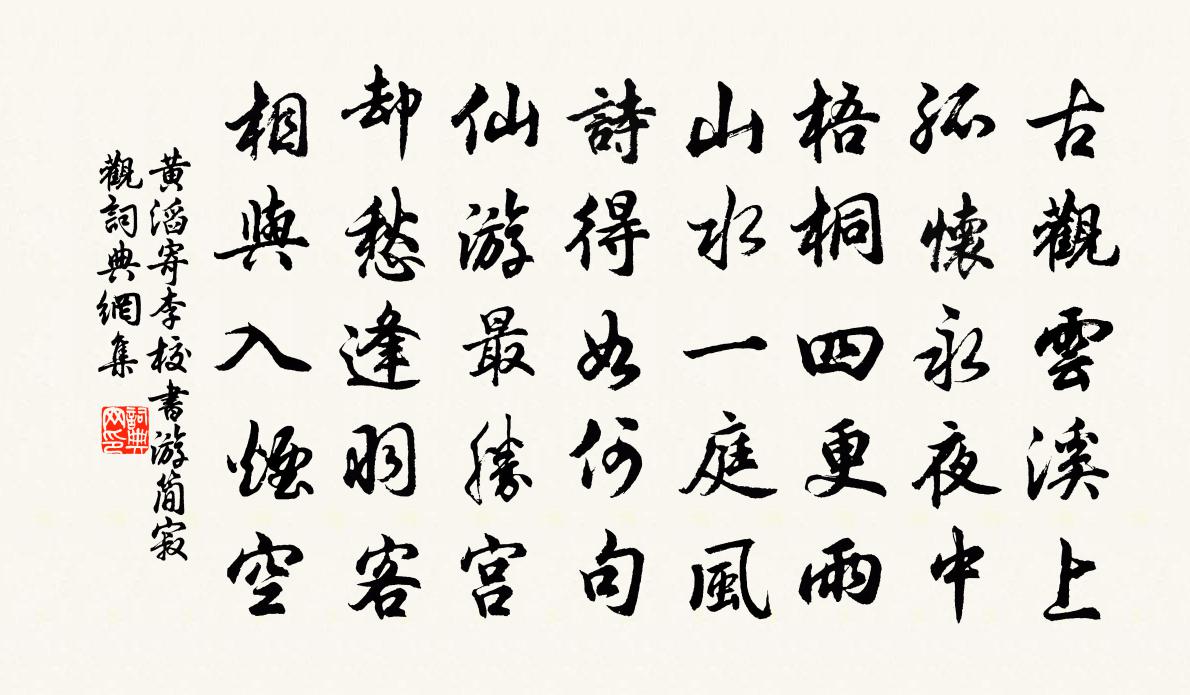 古觀雲溪上
孤懷永夜中
梧桐四更雨
山水一庭風
詩得如何句
仙游最勝宮
却愁逢羽客
相與入煙空
黃滔寄李校書游簡寂
觀詞典網集
詞典
网印